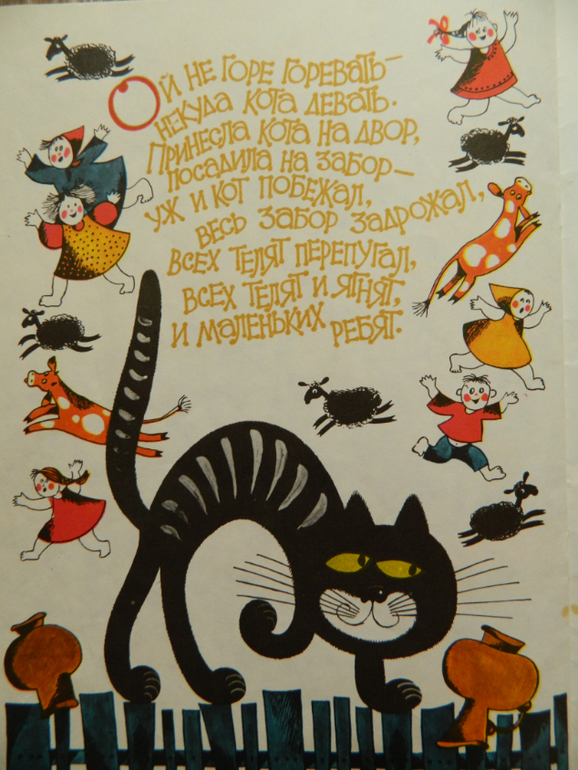 Ой не горе горевать—
некуда кота девать.
Принесла кота на двор,
посадила на забор—
уж и кот побежал,
весь забор задрожал,
всех телят перепугал,
всех телят и ягнят,
и маленьких ребят.